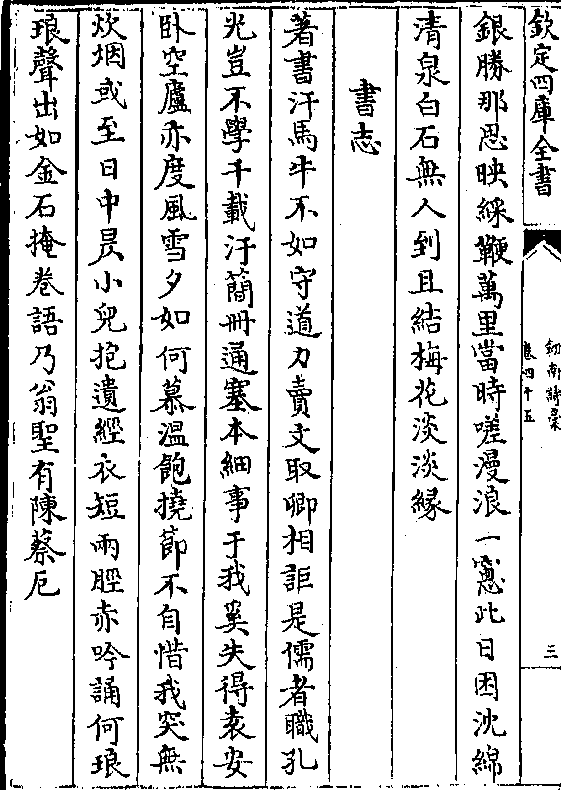 欽定四庫全書
劒南詩稾
卷四十五
三
銀勝那思映綵鞭萬里當時嗟漫浪一窻此日困沈綿
清泉白石無人到且結梅花淡淡緣
書志
著書汗馬牛不如守道力賣文取卿相詎是儒者職孔
光豈不學千載汙簡冊通塞本細事于我奚失得袁安
卧空廬亦度風雪夕如何慕温飽撓莭不自惜我突無
炊烟或至日中昃小兒抱遺經衣短兩脛赤吟誦何琅
琅聲出如金石掩卷語乃翁聖有陳蔡厄